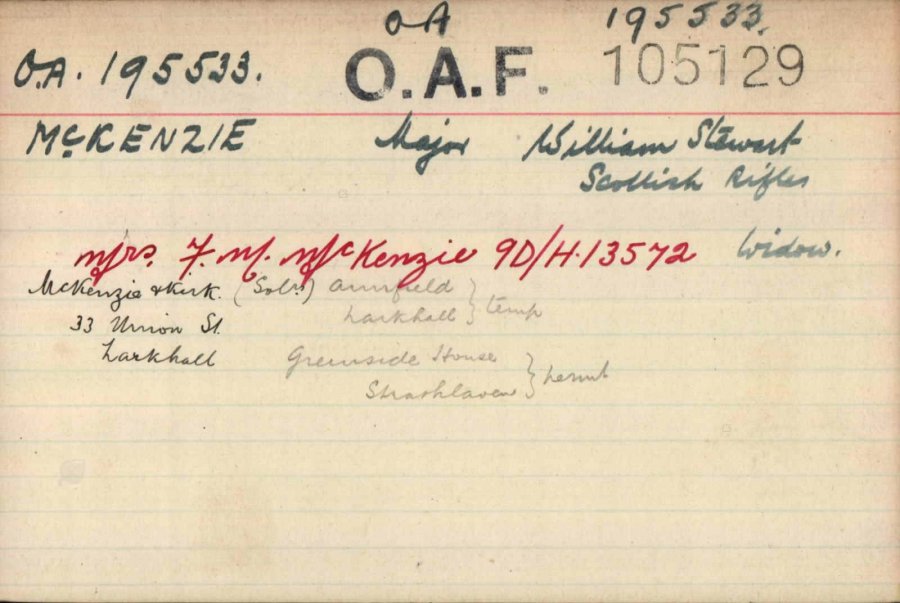 OA 195533.
O.A. 195533. O.A.F. 105129
McKENZIE Major William Stewart
Scottish Rifles
Mrs. F. M. McKenzie 9D/H.13572 Widow.
McKenzie & Kirk. (Solrs) Annfield
33 Union St. Larkhall } temp
Larkhall Greenside House
Strathaven } permt